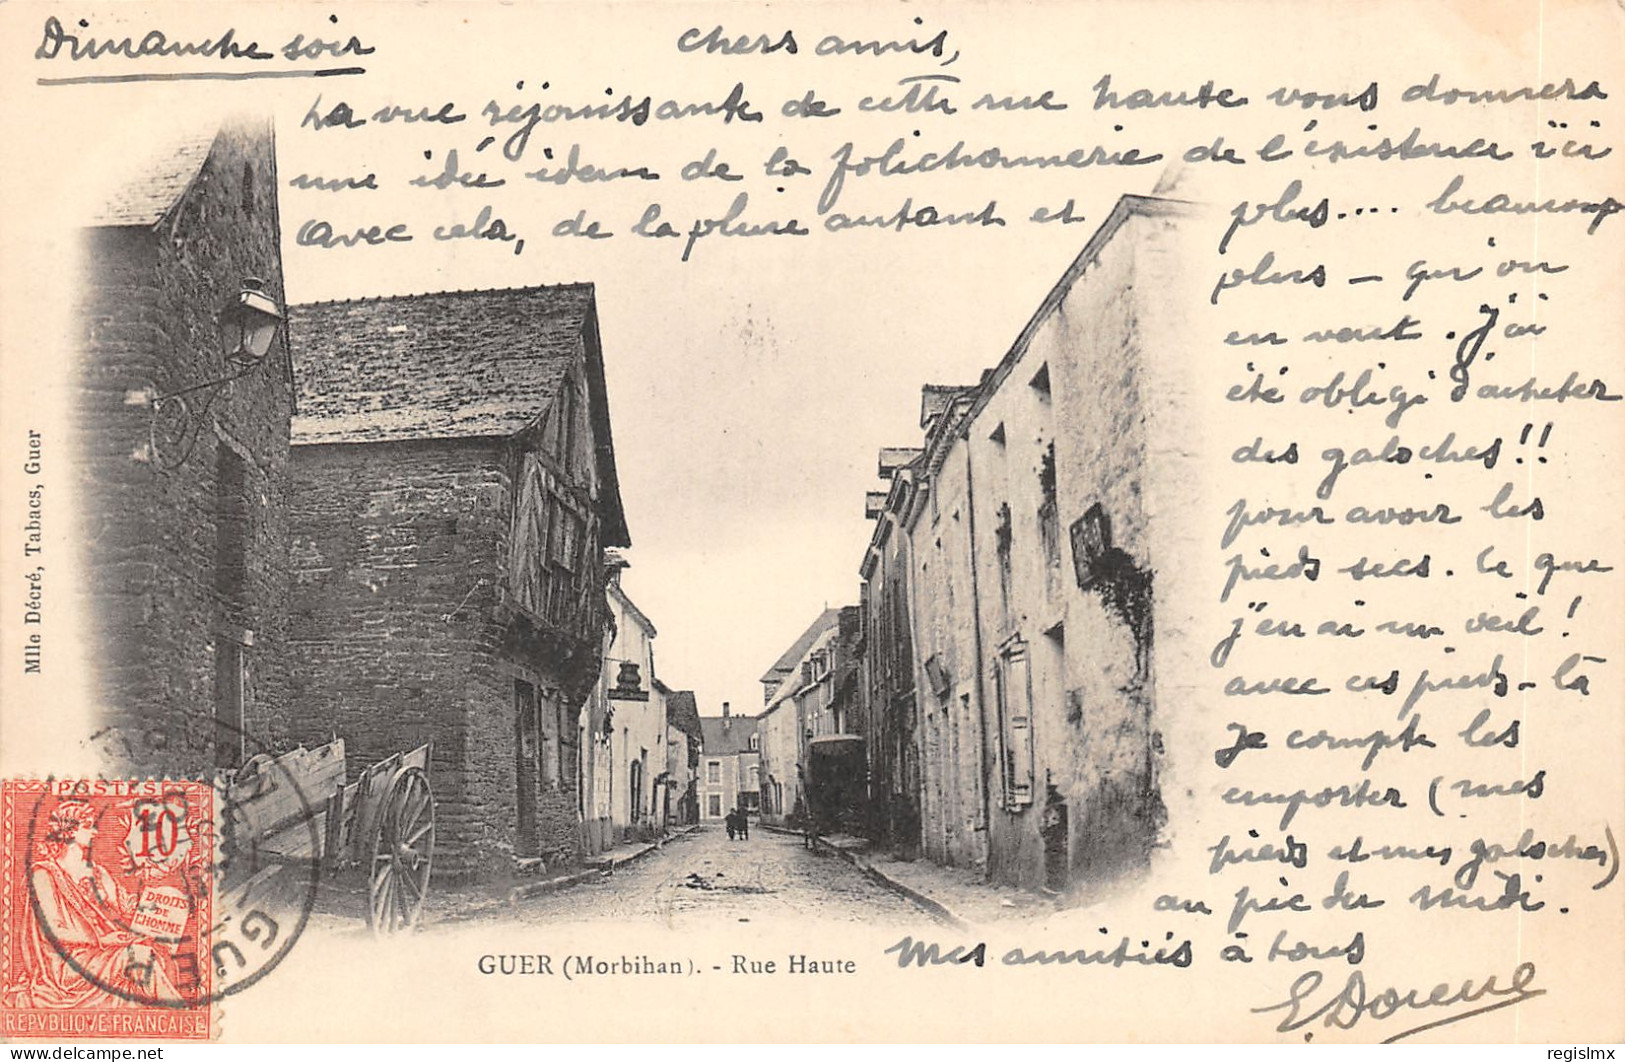 Dimanche soir
chers amis,
La vue réjouissante de cette rue haute vous donnera
une idée idem de la folichonnerie de l'éxistence ïci
Avec cela, de la pluie autant et plus.... beaucoup
plus — qu'on
en veut. J'ai
été obligé d'acheter
des galoches!!
pour avoir les
pieds secs. Ce que
j'en ai un veil!
avec ces pieds-là
Je compte les
emporter (mes
pieds et mes galoches)
au pic du Midi.
Mes amitiés à tous
E. Doreue
Mlle Décré, Tabacs, Guer
GUER (Morbihan). - Rue Haute
POSTES
10
DROITS
DE
L'HOMME
REPVBLIQVE FRANÇAISE
GUER
regislmx